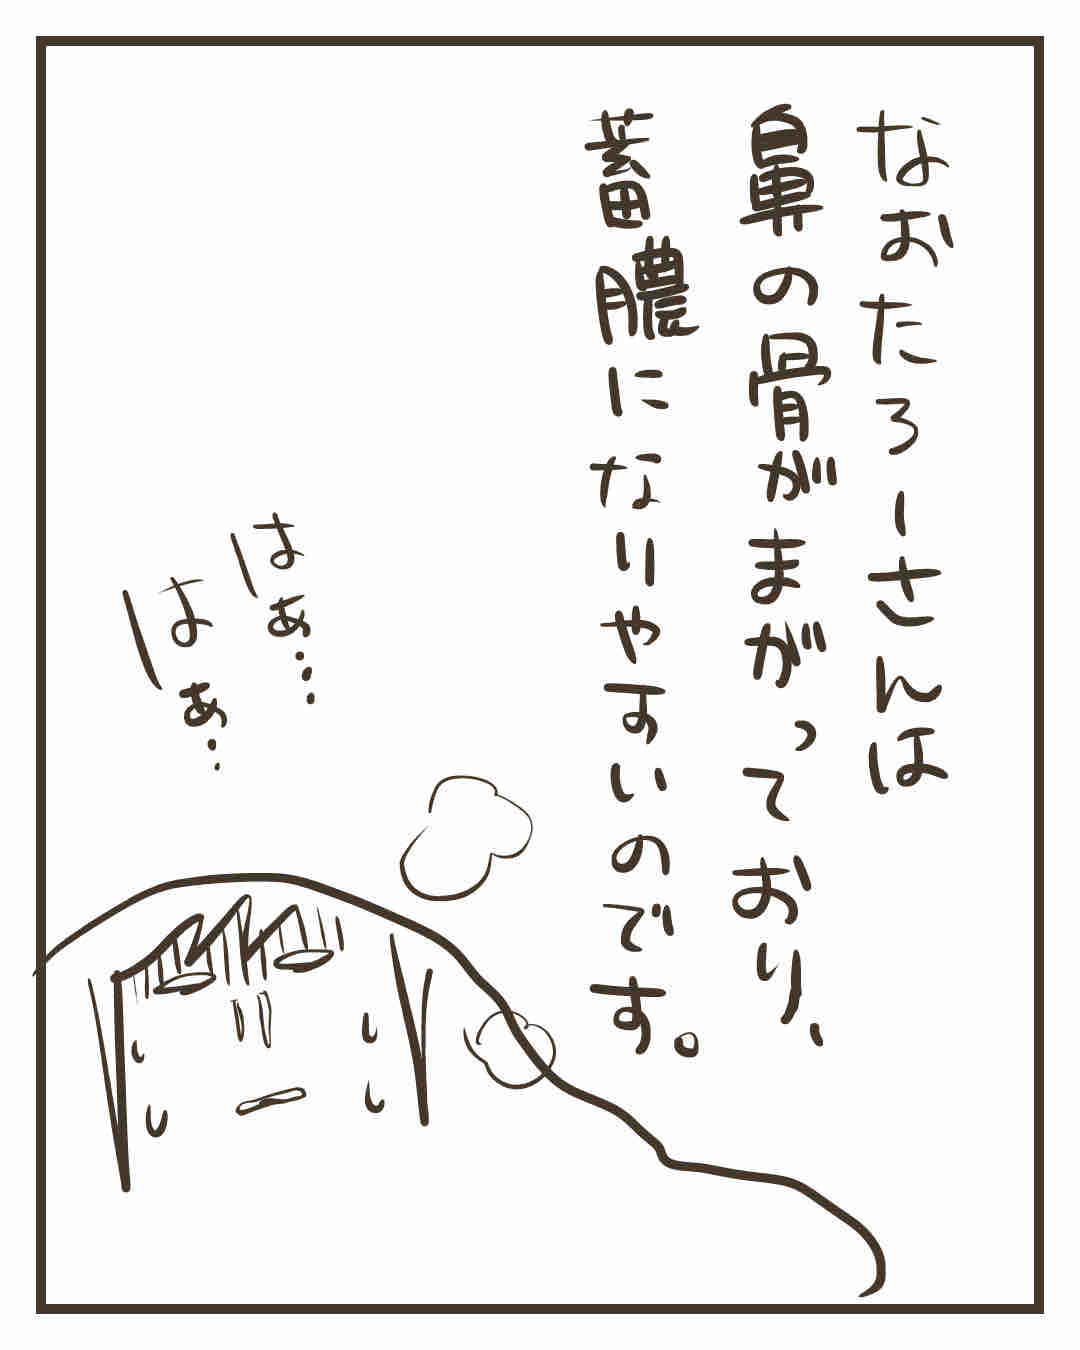 なおたろーさんは
鼻の骨がまがっており、
蓄膿になりやすいのです。
はぁ…
はぁ…